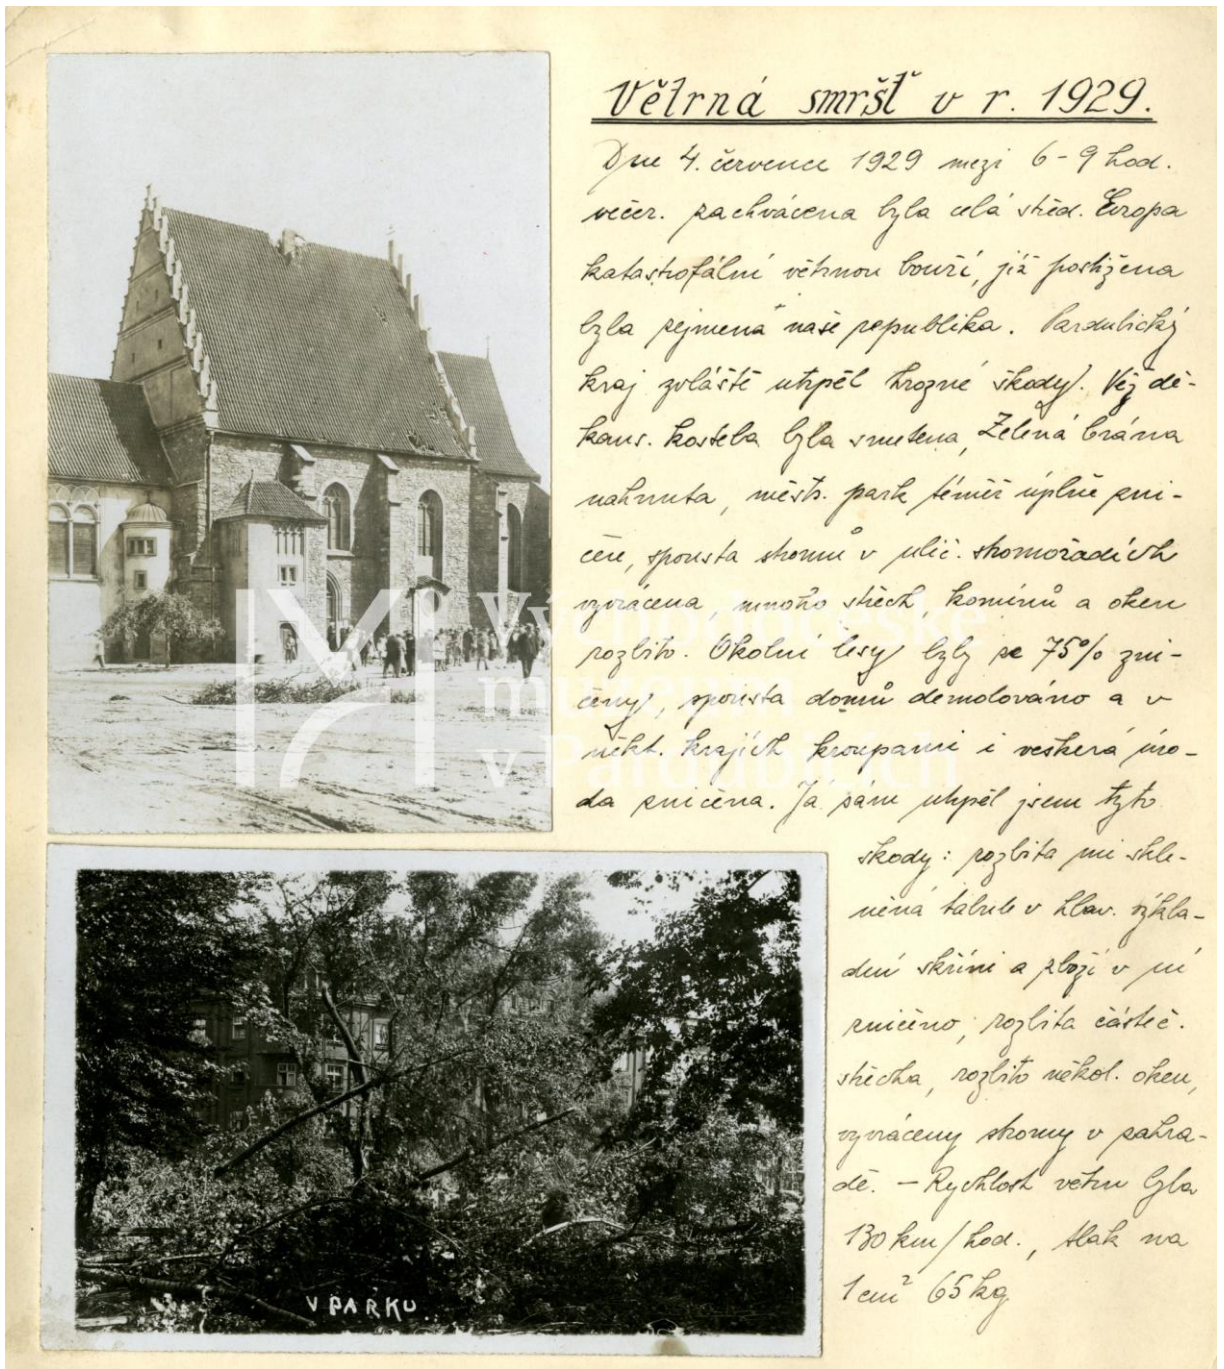 Větrná smršť v r. 1929.
Dne 4. července 1929 mezi 6-9 hod.
večer. zachvácena byla celá střed. Evropa
katastrofální větrnou bouří, již postižena
byla zejmena naše republika. Pardubický
kraj zvláště utrpěl hrozné škody. Věž dě-
kans. kostela byla smetena, Zelená brána
nahnuta, městs. park téměř úplně zni-
čen, spousta stromů v ulič. stromořadích
vyvrácena, mnoho střech, komínů a oken
rozbito. Okolní lesy byly ze 75% zni-
čeny, spousta domů demolováno a v
někt. krajích kroupami i veškerá úro-
da zničena. Já sám utrpěl jsem tyto
škody: rozbita mi skle-
něná tabule v hlav. výkla-
dní skříni a zboží v ní
zničeno, rozbita částeč.
střecha, rozbito někol. oken,
vyvráceny stromy v zahra-
dě. — Rychlost větru byla
130 km/hod., tlak na
1 cm² 65 kg
V PARKU.
Východočeské
muzeum
v Pardubicích